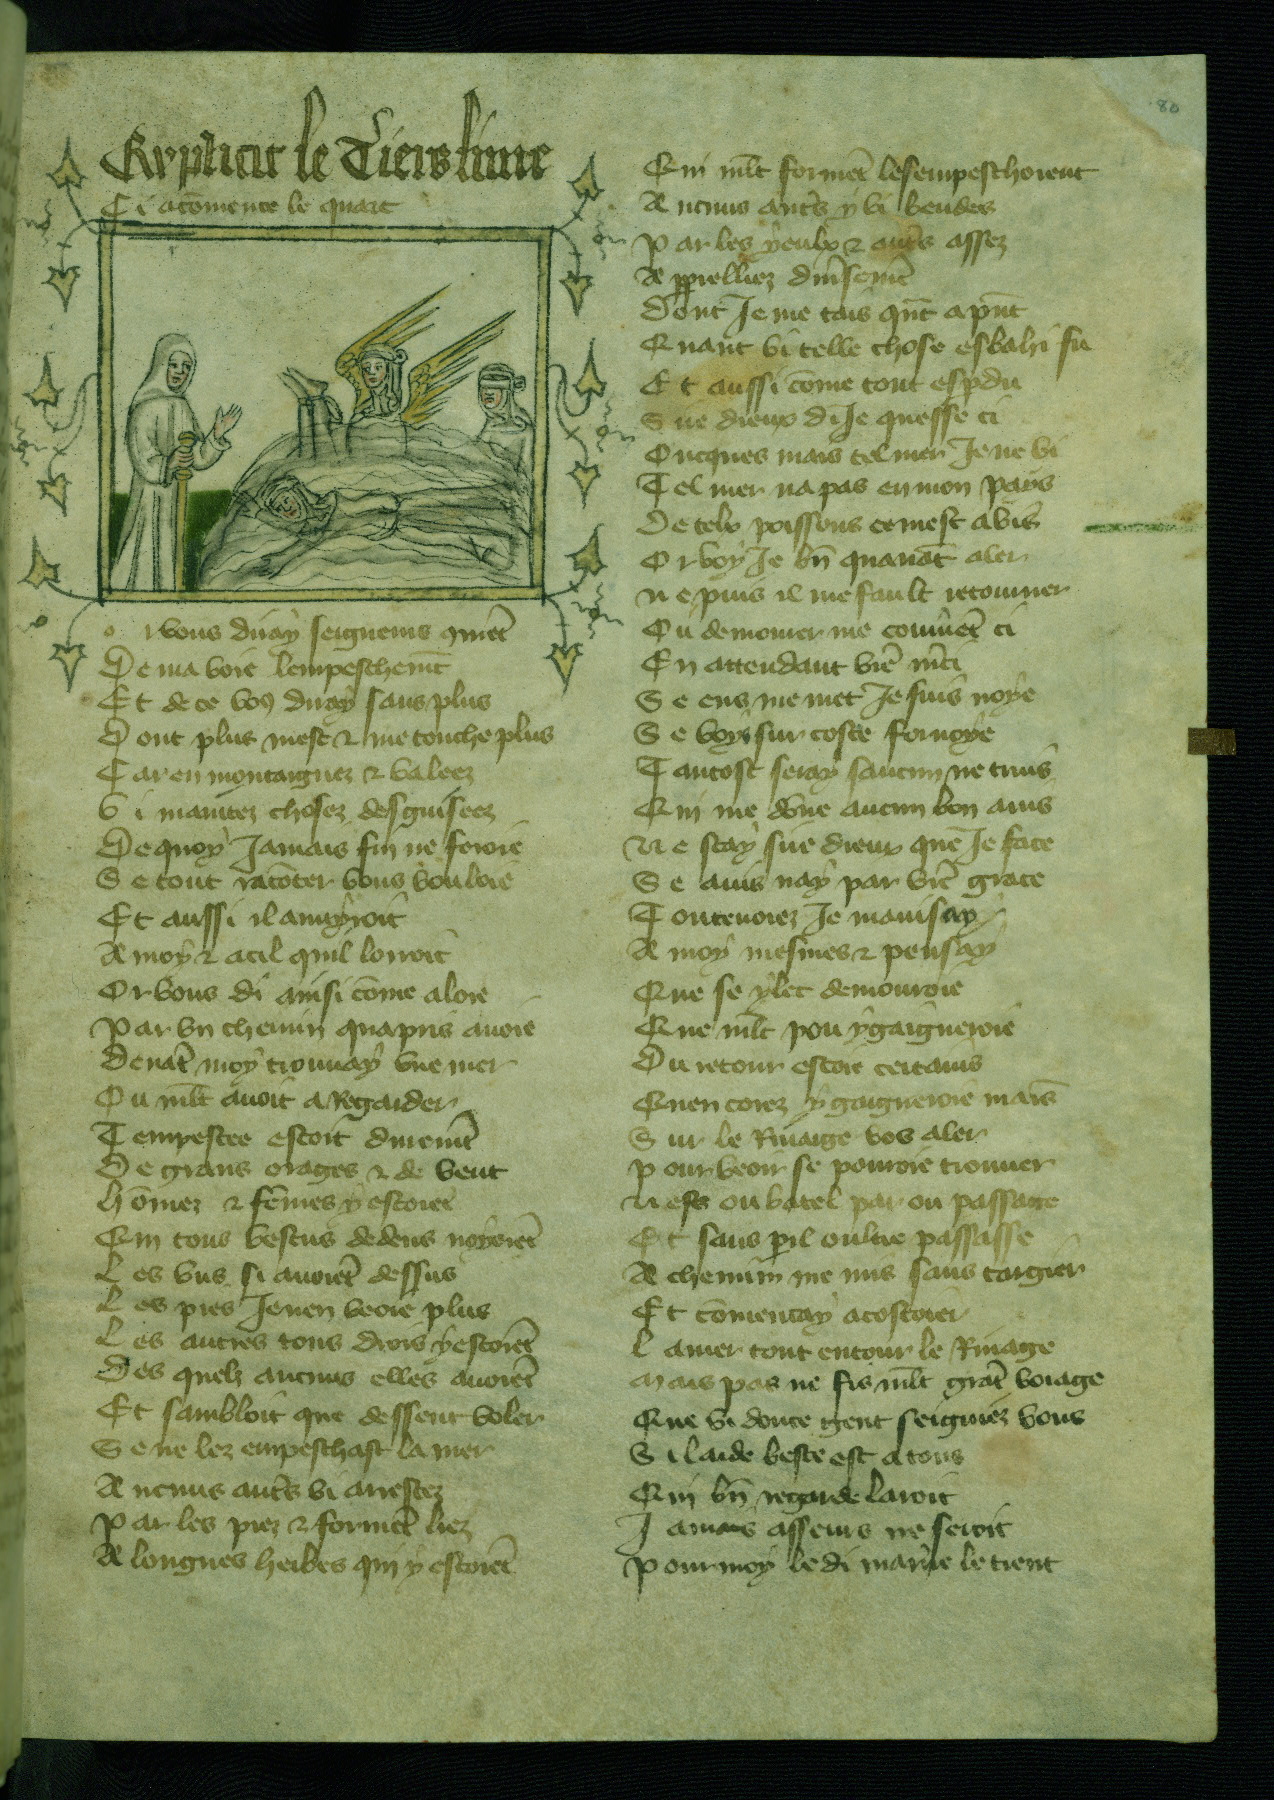 Explicit le Tiers livre
Ci acōmence le quart
Or vous diray seigneurs qm̄et
De ma voie lempeschem̄t
Et de ce voꝰ diray sans plus
Dont plus mest ⁊ me touche plus
Car en montaignez ⁊ valeez
Vi maintez chosez desguiseez
De quoy Jamais fin ne feroie
Se tout racōter vous vouloie
Et aussi il anuyroit
A moy ⁊ a cil quil lorroit
Or vous di ainsi cōme aloie
Par vn chemin quapris auoie
Deuāt moy trouuay vne mer
Ou ml̄t auoit a Regarder
Tempestee estoit durem̄t
De grans orages ⁊ de vent
hōmez ⁊ fēmes y estoiēt
Qui tous vestus dedens noyoiēt
Les vns si auoiēt dessus
Les pies Je nen veoie plus
Les autres tous drois y estoiēt
Des quelz aucuns elles auoiēt
Et sambloit que deussent voler
Se ne lez empeschast la mer
Aucuns aut̄s vi arrestez
Par les piez ⁊ form̄et liez
A longues herbes qui y estoiēt
80
Qui ml̄t form̄et les empeschoient
Aucuns aut̄s y vi bendes
Par les yeulx ⁊ aut̄s assez
Appielliez diu̾sem̄t
Dont Je me tais qn̄t a pn̄t
Quant vi telle chose esbahi fu
Et aussi cōme tout esꝑdu
Sire dieux di Je quesse ci
Oncques mais tel mer Je ne vi
Tel mer na pas en mon pays
De telx poissons ce mest avis
Or voy Je bn̄ quauāt aler
ne puis il me fault retourner
Ou demourer me couuiēt ci
En attendant vr̄e m̄ci
Se ens me met Je suis noye
Se voys sur coste foruoye
Tantost seray saucun ne truis
Qui me dōne aucun bon auis
Ne scay sire dieux que Je face
Se auis nay par vr̄e grace
Toutevoiez Je mauisay
A moy mesmes ⁊ pensay
Que se ylec demouroie
Que ml̄t pou y gaigneroie
Du retour estoie certains
Quencorez y gaigneroie mains
Sur le Riuaige vos aler
Pour veoir se pouroie trouuer
Nefs ou batel par ou passage
Et sans ꝑil oultre passasse
A chemin me mis sans targier
Et cōmencay a costoier
La mer tout entour le Riuage
Mais pas ne fis ml̄t grāt voiage
Que vi donce gent seignieʳ vous
Si laide beste est a tous
Qui bn̄ regarde laroit
Jamais asseurs ne seroit
Pour moy le di mar̾ie le tient